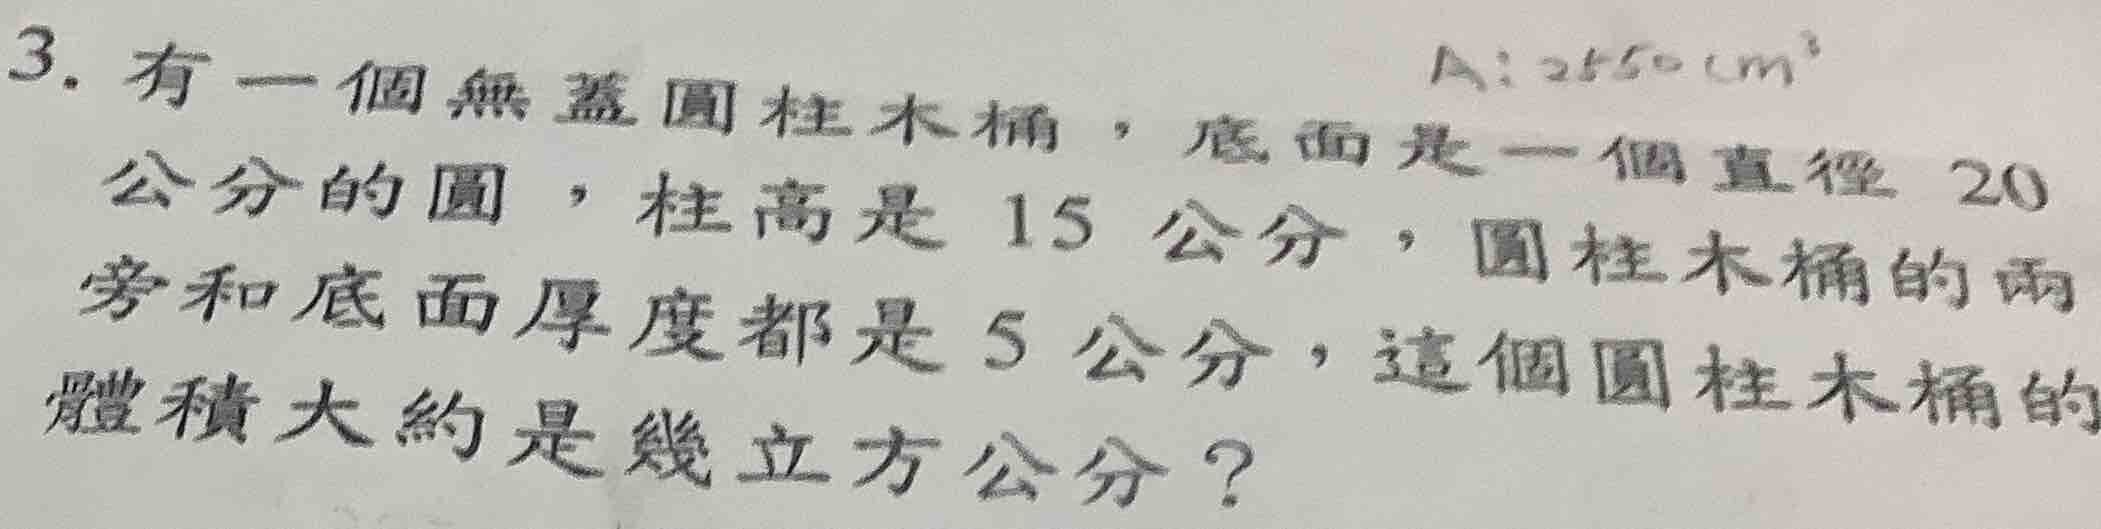 A: 2550cm³
3. 有一個無蓋圓柱木桶，底面是一個直徑 20
公分的圓，柱高是 15 公分，圓柱木桶的兩
旁和底面厚度都是 5 公分，這個圓柱木桶的
體積大約是幾立方公分？